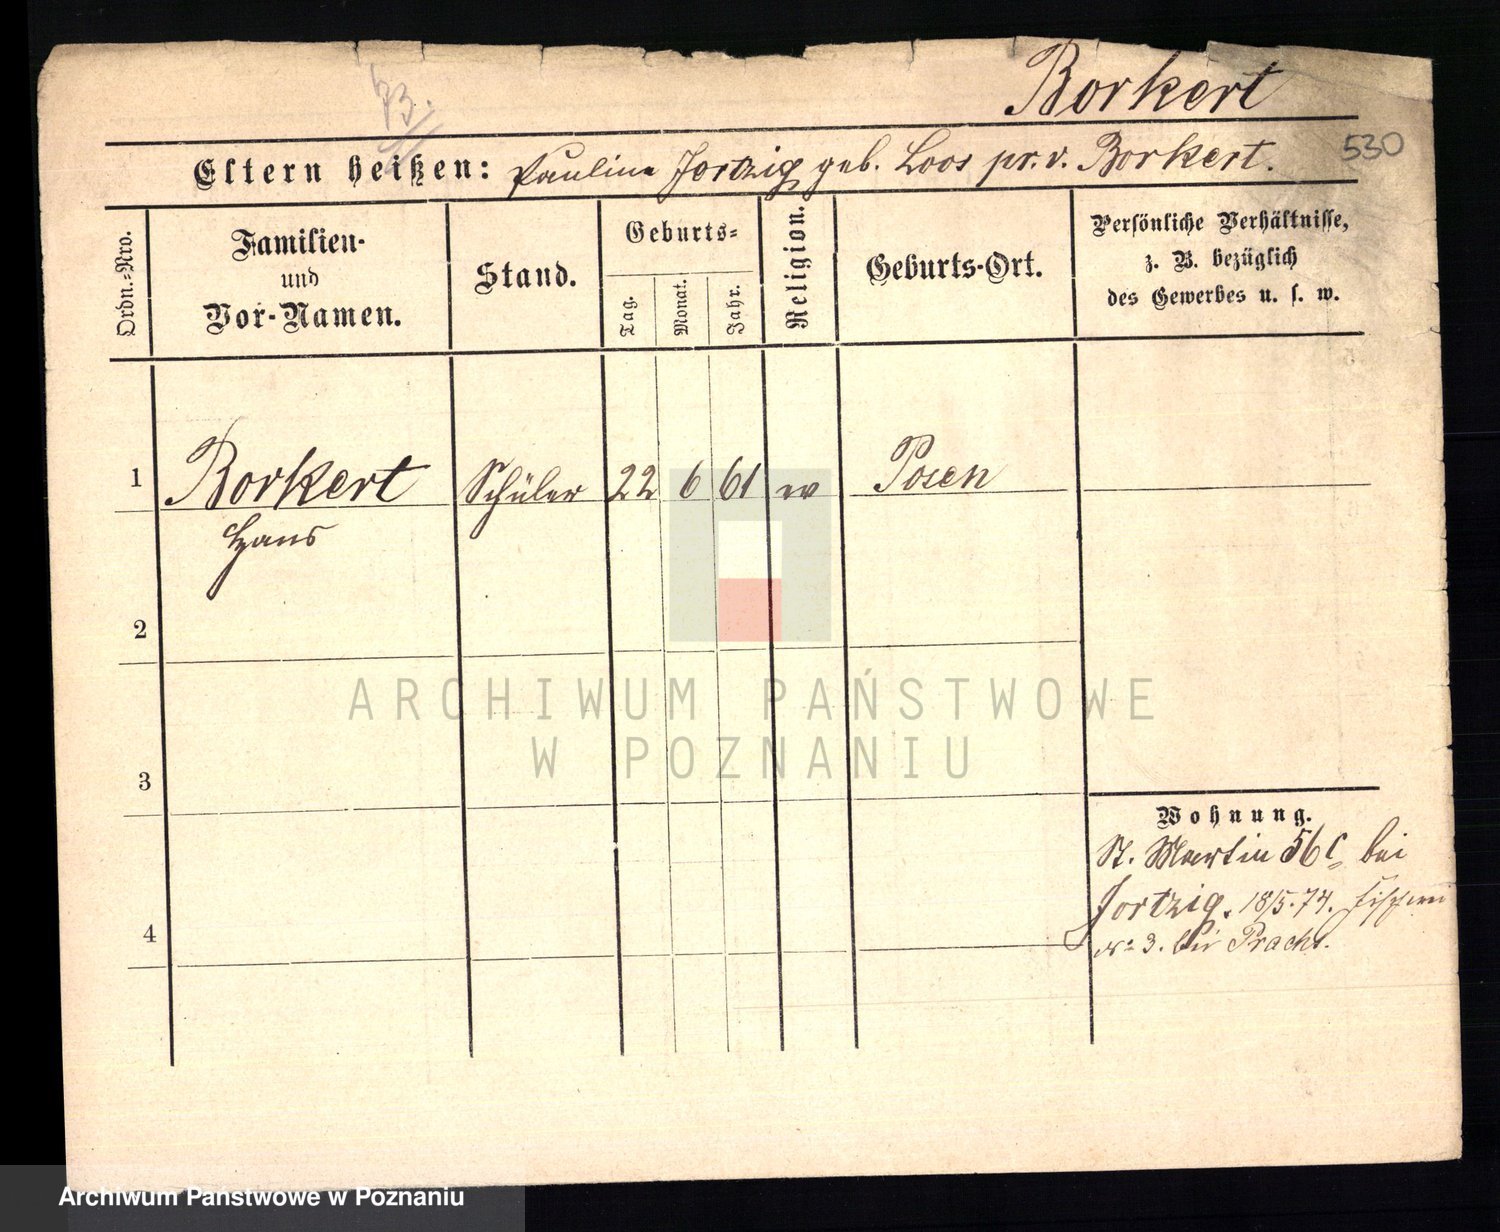 73.
Borkert
530
Eltern heißen: Pauline Jortzig geb. Loos pr. v. Borkert.
Ordn.-Nro.
Familien-
und
Vor-Namen.
Stand.
Geburts-
Tag.
Monat.
Jahr.
Religion.
Geburts-Ort.
Persönliche Verhältnisse,
z. B. bezüglich
des Gewerbes u. s. w.
1 Borkert Schüler 22 6 61 ev Posen
Hans
2
3
4
Wohnung.
St. Martin 56 c bei
Jortzig. 18/5.74.
No 3. bei Pracht.
ARCHIWUM PAŃSTWOWE
W POZNANIU
Archiwum Państwowe w Poznaniu